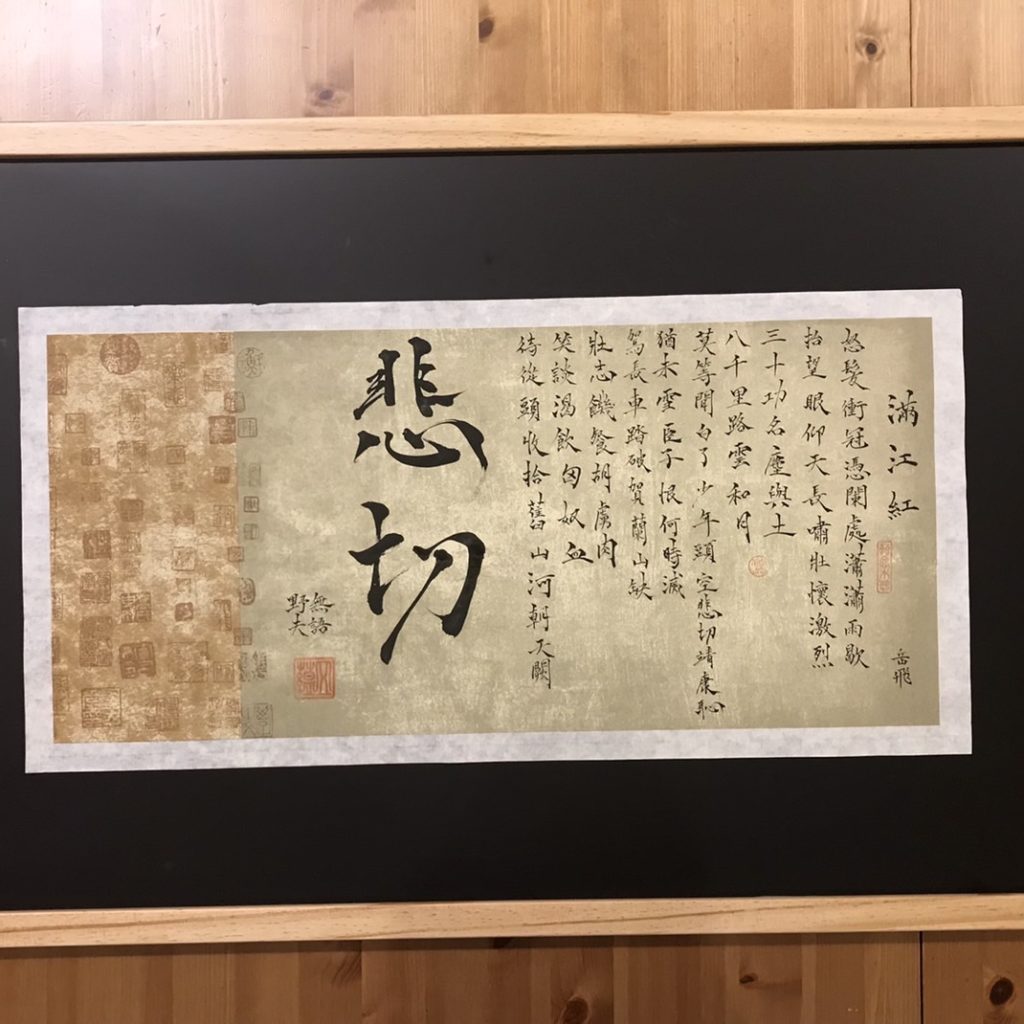 滿江紅
岳飛
怒髮衝冠憑闌處瀟瀟雨歇
抬望眼仰天長嘯壯懷激烈
三十功名塵與土
八千里路雲和月
莫等閒白了少年頭空悲切靖康恥
猶未雪臣子恨何時滅
駕長車踏破賀蘭山缺
壯志饑餐胡虜肉
笑談渴飲匈奴血
待從頭收拾舊山河朝天闕
悲切
無語
野夫